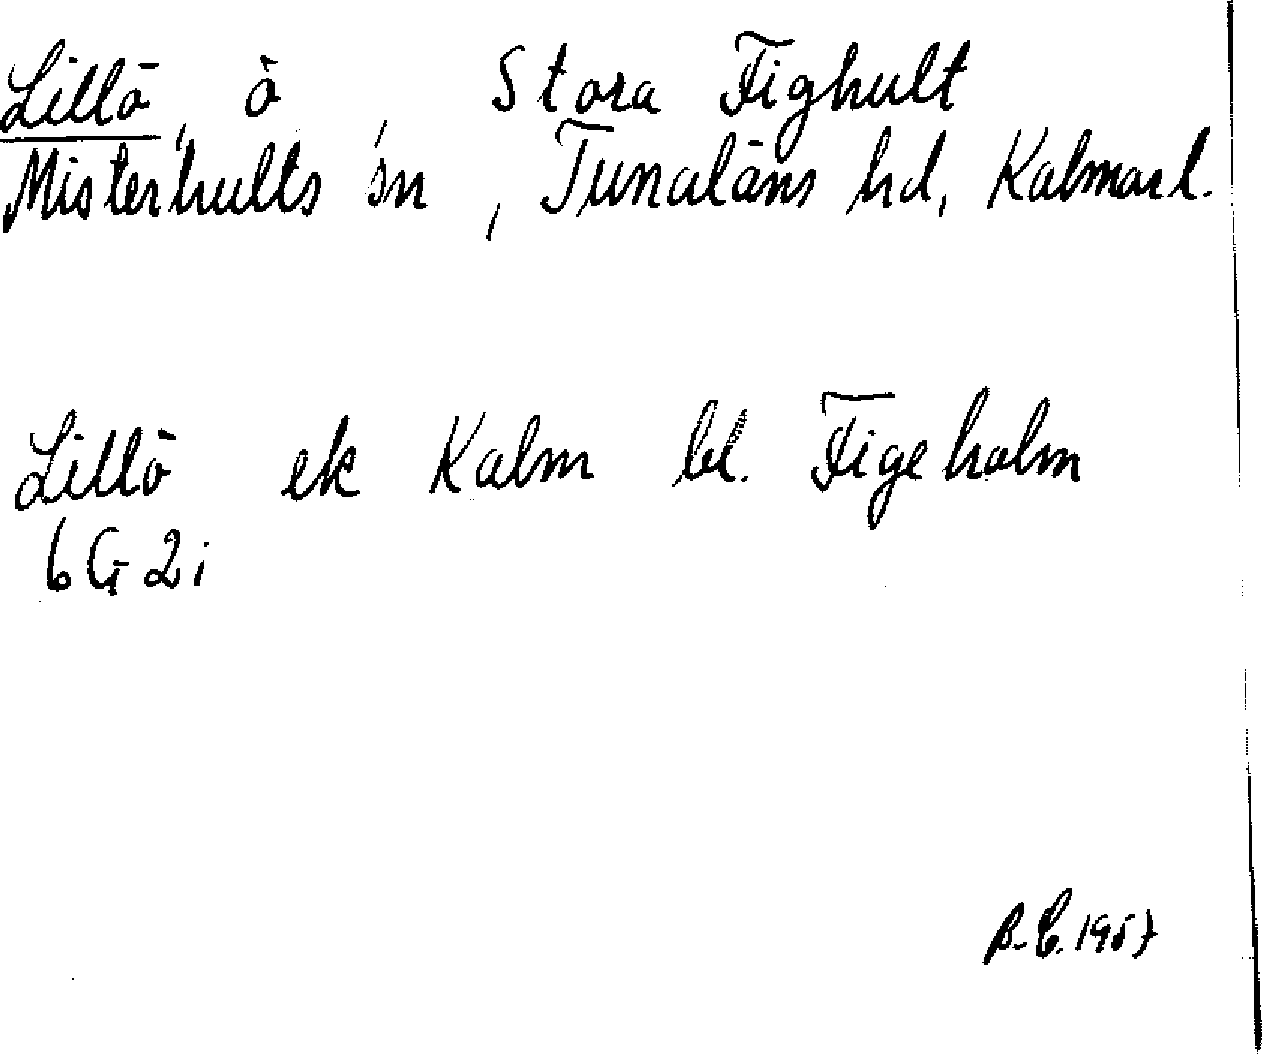 Lillö, ö, Stora Fighult
Misterhults sn, Tunaläns hd, Kalmar l.
Lillö ek Kalm bl. Figeholm
6G 2i
B.C. 1957